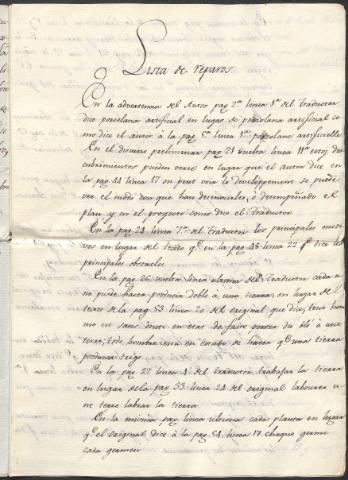 Lista de reparos.
En la advertencia del Autor pag 2ª linea 1ª del Traductor
dice porcelana artificial en lugar de porcelana artificial co
mo dice el autor à la pag 5ª linea 1ª porcelane artificielle
En el discurso preliminar pag 21 vuelta linea 11ª estos des
cubrimientos pueden verse en lugar que el autor dice en
la pag 44 linea 17 on peut voir le developpement se puede
ver el modo con que han desenvuelto, ó desempeñado el
plan y en el proyecto como dice el traductor
En la pag 24 linea 7ª del traductor los principales
en lugar del texto qᵉ en la pag 48 linea 22 dice los
principales obstaculos.
En la pag 26 vuelta linea ultima del Traductor cada u
no puede hacer producir doble à una tierra, en lugar de
terse de la pag 53 linea 20 del original que dice, tout hom
me en sans doute en etat de faire porter du blé à une
terre; todo hombre está en estado de hacer qᵉ una tierra
produzca trigo
En la pag 27 linea 4 del traductor trabajar la tierra
en lugar de la pag 53 linea 24 del original labourer u
ne terre labrar la tierra
En la misma pag linea ultima cada planta en lugar
qᵉ el original dice à la pag 54 linea 17 chaque germe
cada germen